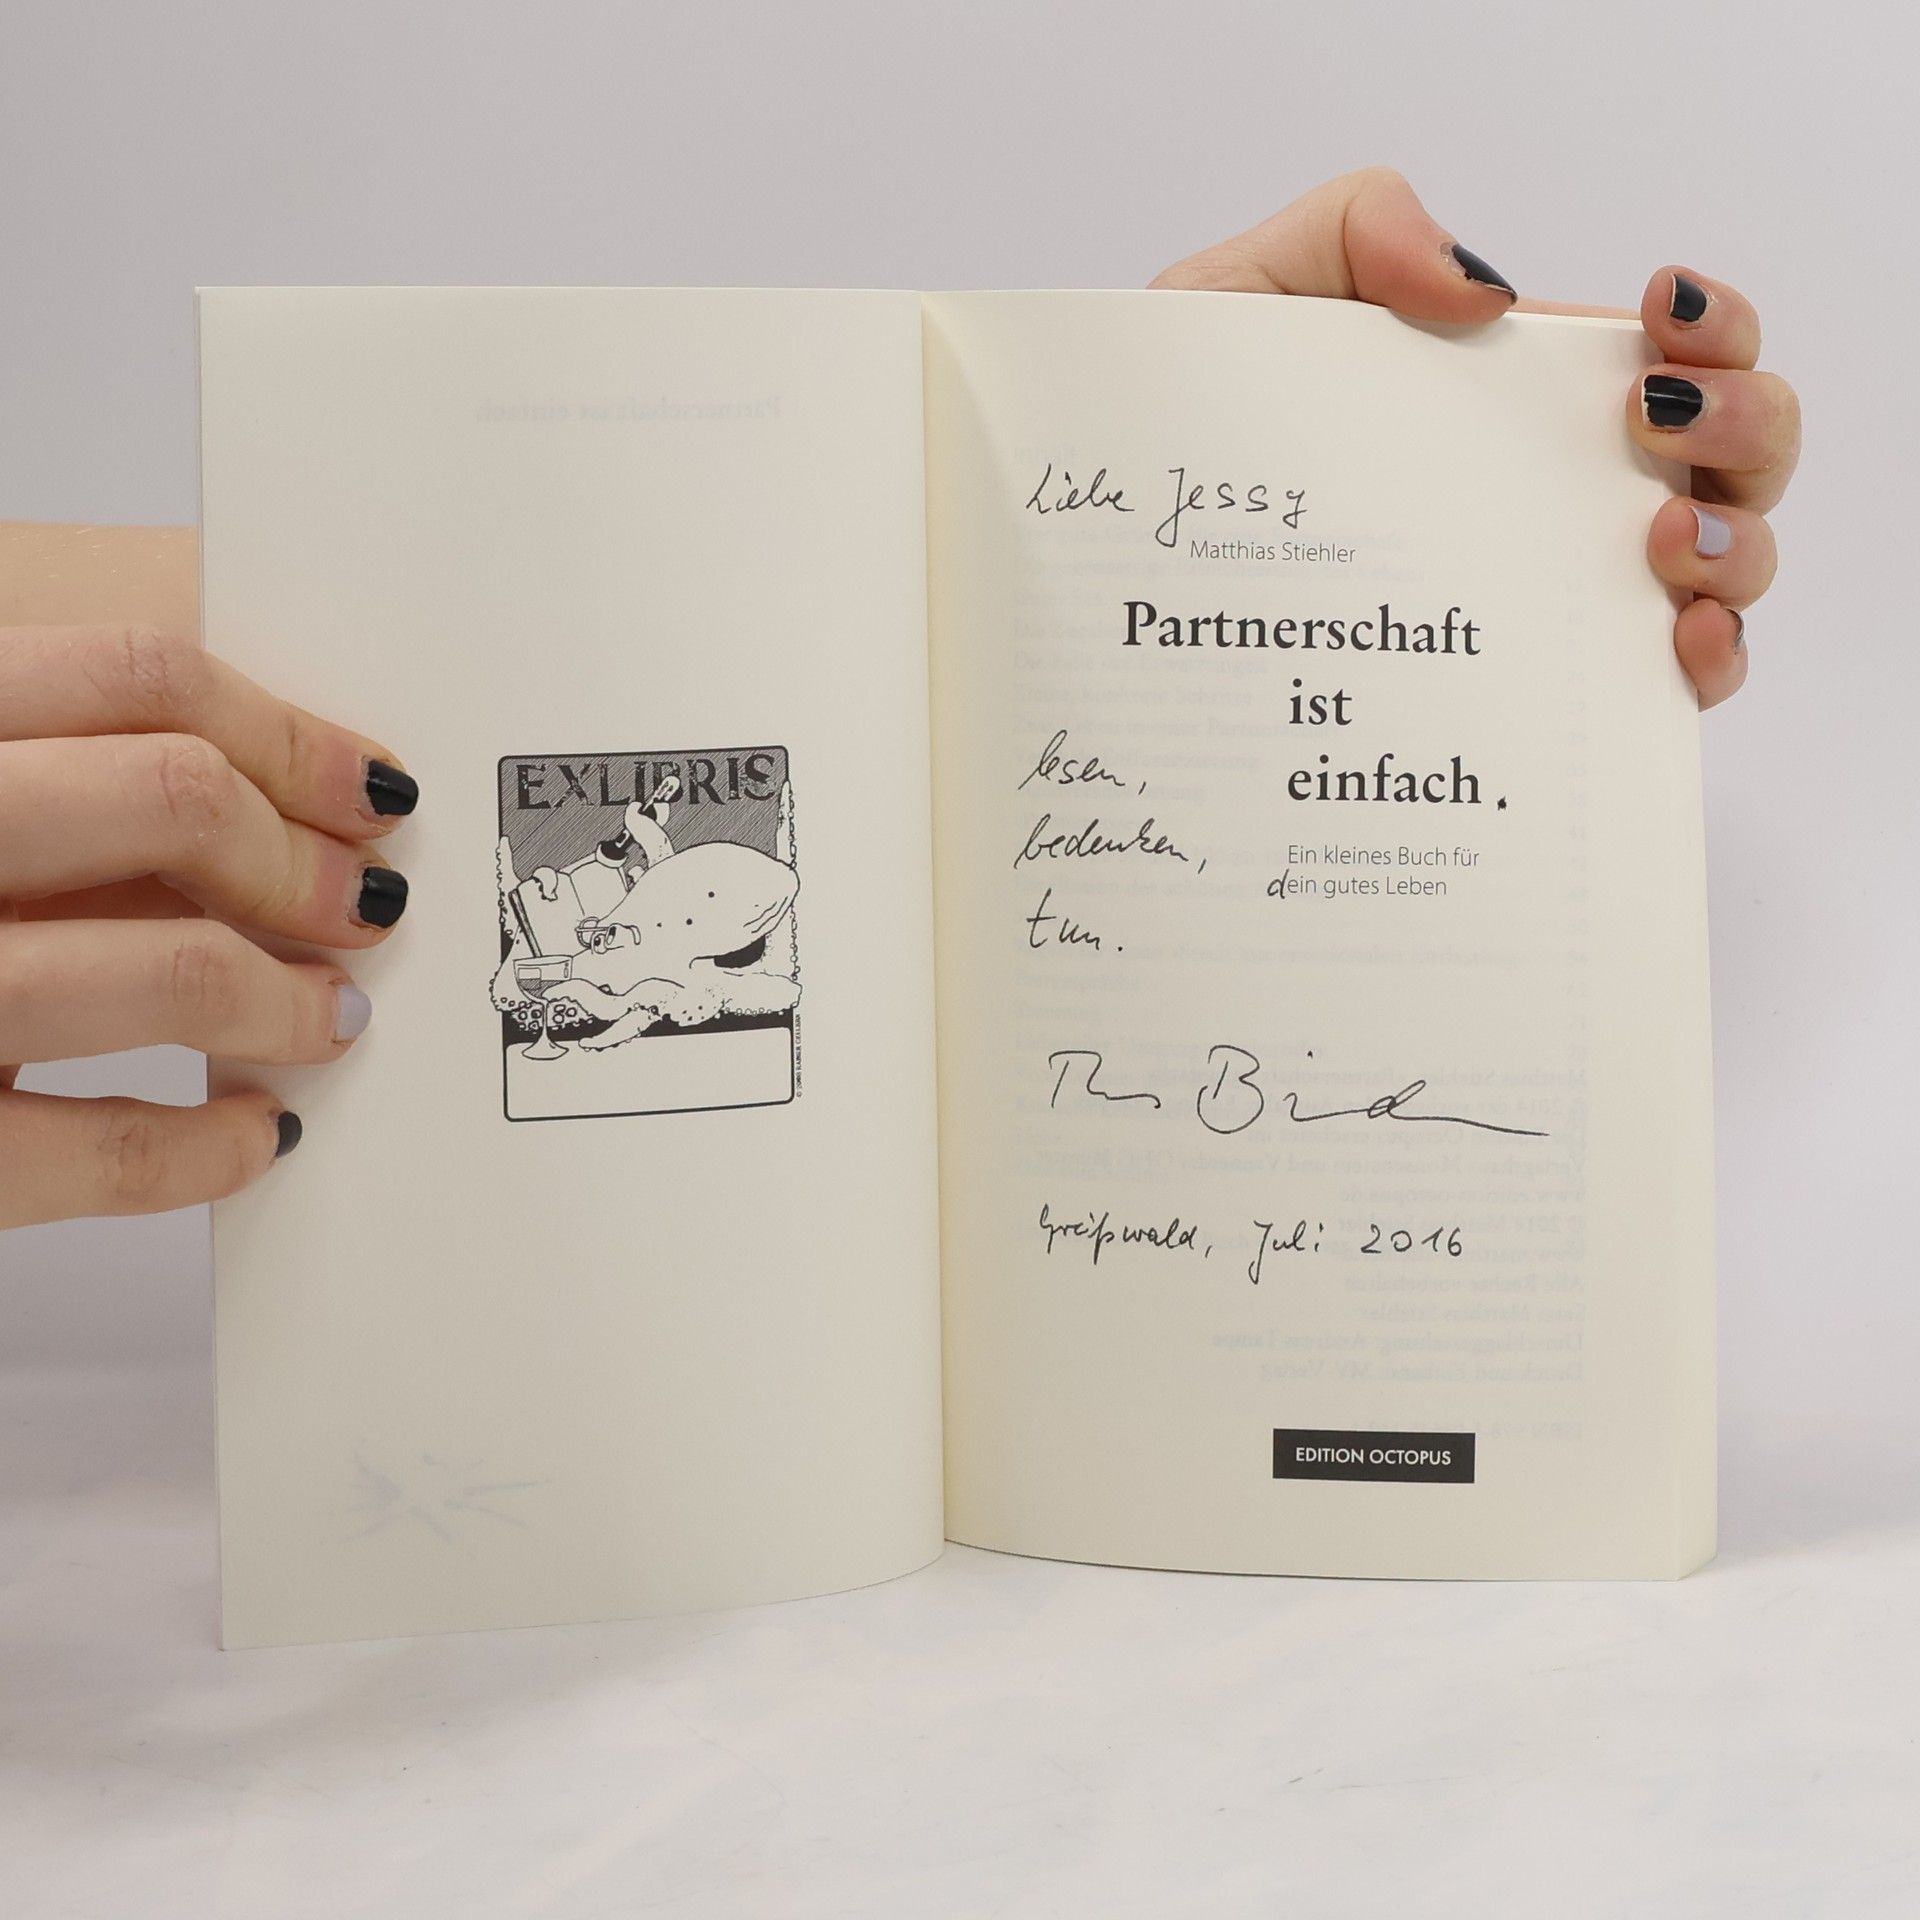 EXLIBRIS
Liebe Jessy
Matthias Stiehler
Partnerschaft
ist
einfach.
lesen,
bedenken,
tun.
Ein kleines Buch für
dein gutes Leben
Greifswald, Juli 2016
EDITION OCTOPUS